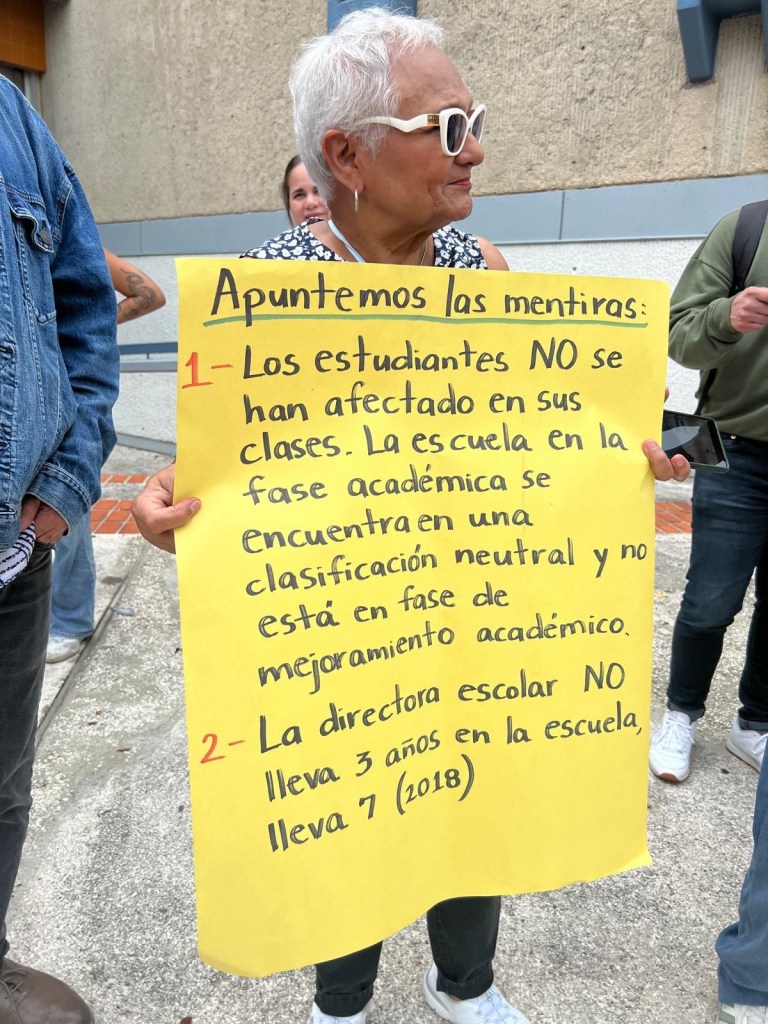 Apuntemos las mentiras:
1- Los estudiantes NO se
han afectado en sus
clases. La escuela en la
fase académica se
encuentra en una
clasificación neutral y no
está en fase de
mejoramiento académico.
2- La directora escolar NO
lleva 3 años en la escuela,
lleva 7 (2018)